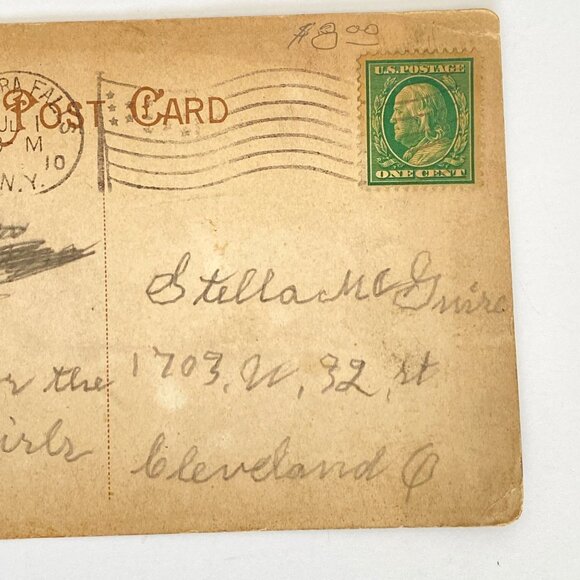 $8.00
U.S. POSTAGE
ONE CENT
RA FALLS
JUL 1
M
10
N.Y.
POST CARD
Stella McGuire
1703, W, 32, st
Cleveland O
the